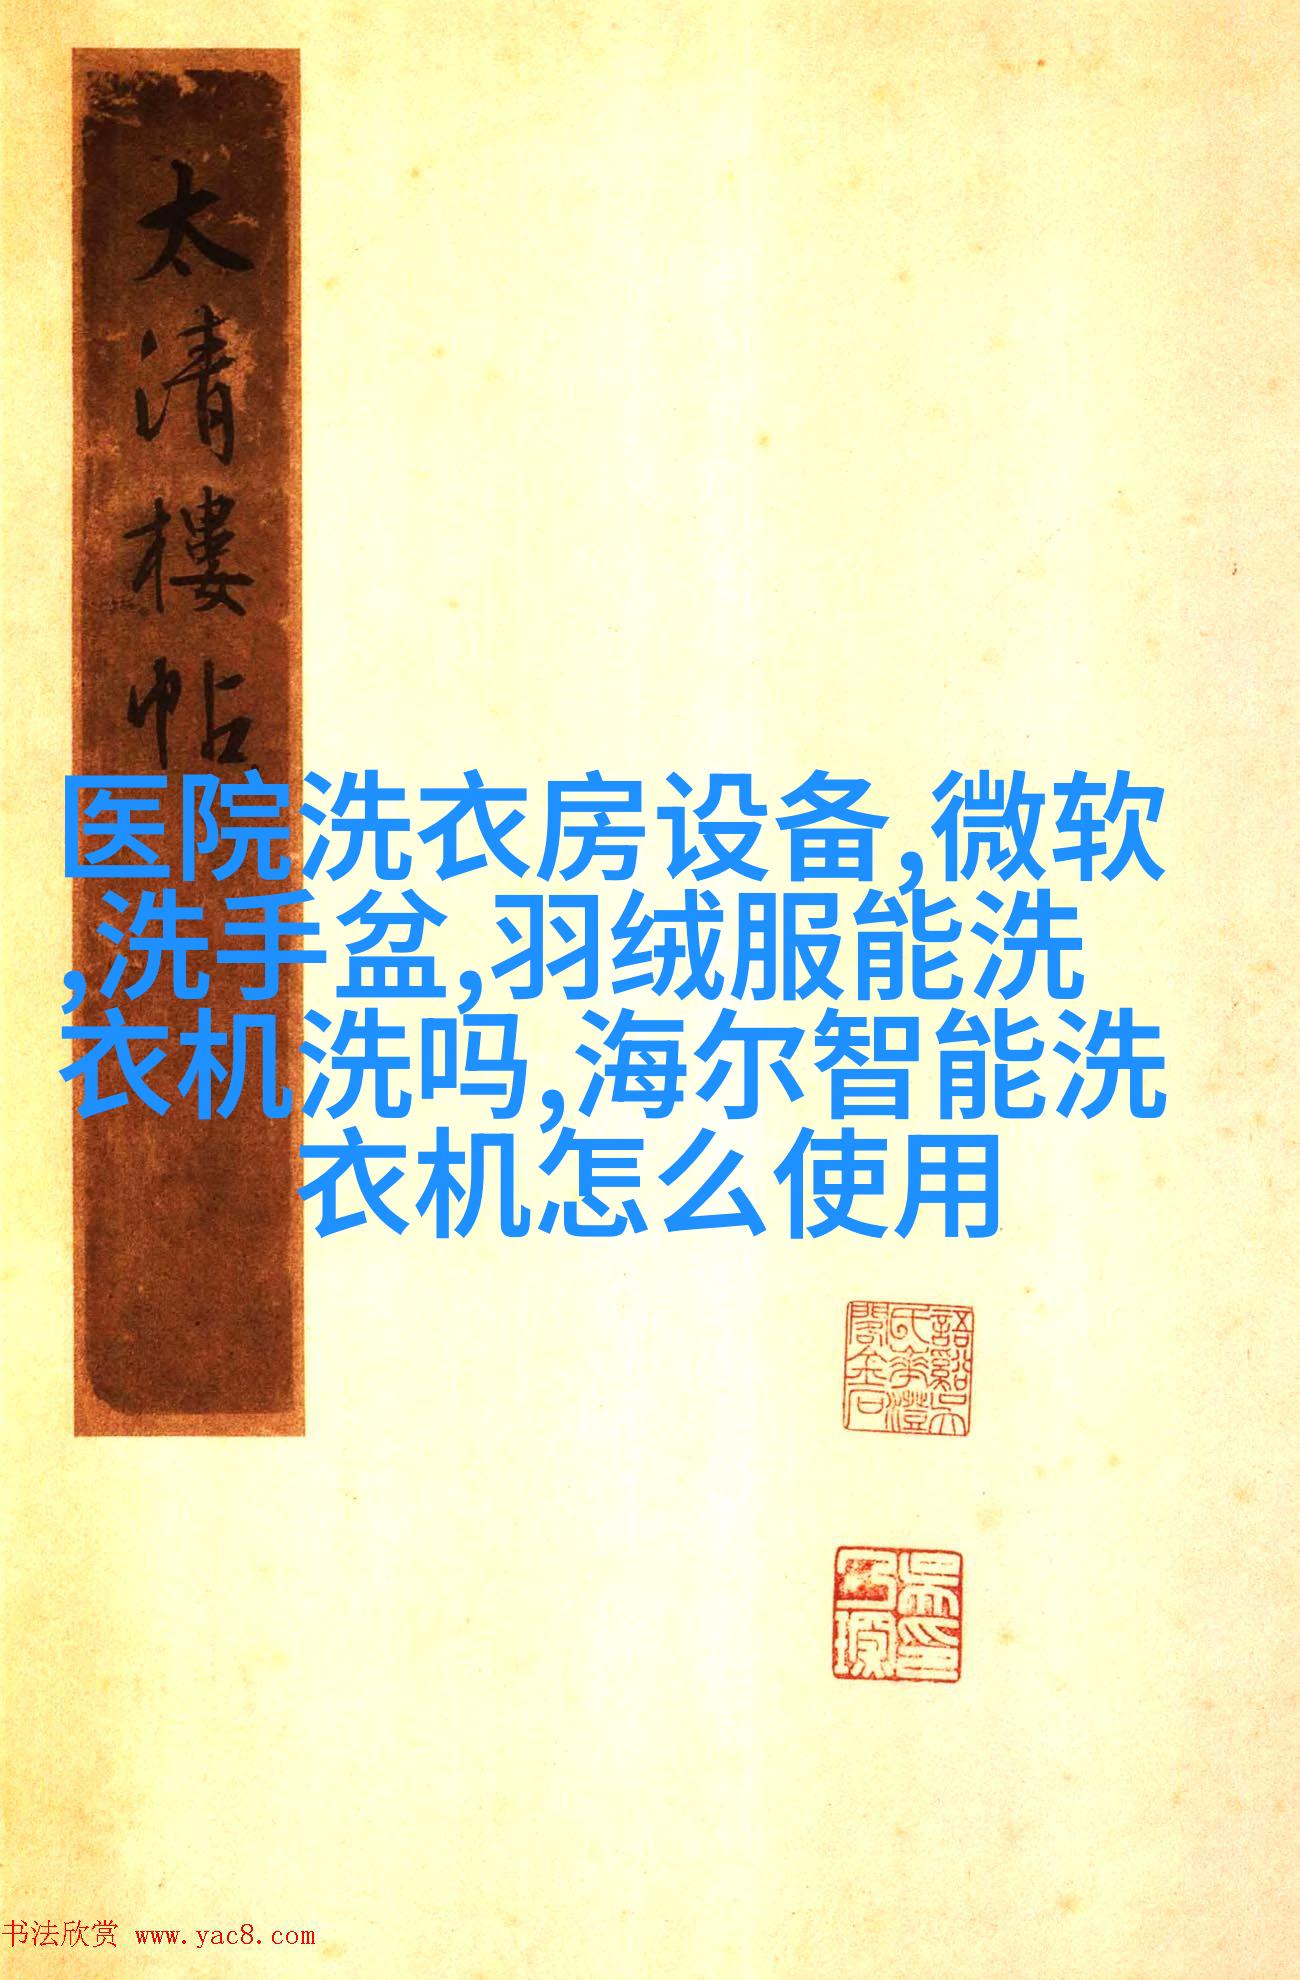 太清樓帖
医院洗衣房设备,微软
,洗手盆,羽绒服能洗
衣机洗吗,海尔智能洗
衣机怎么使用
书法欣赏 www.yac8.com